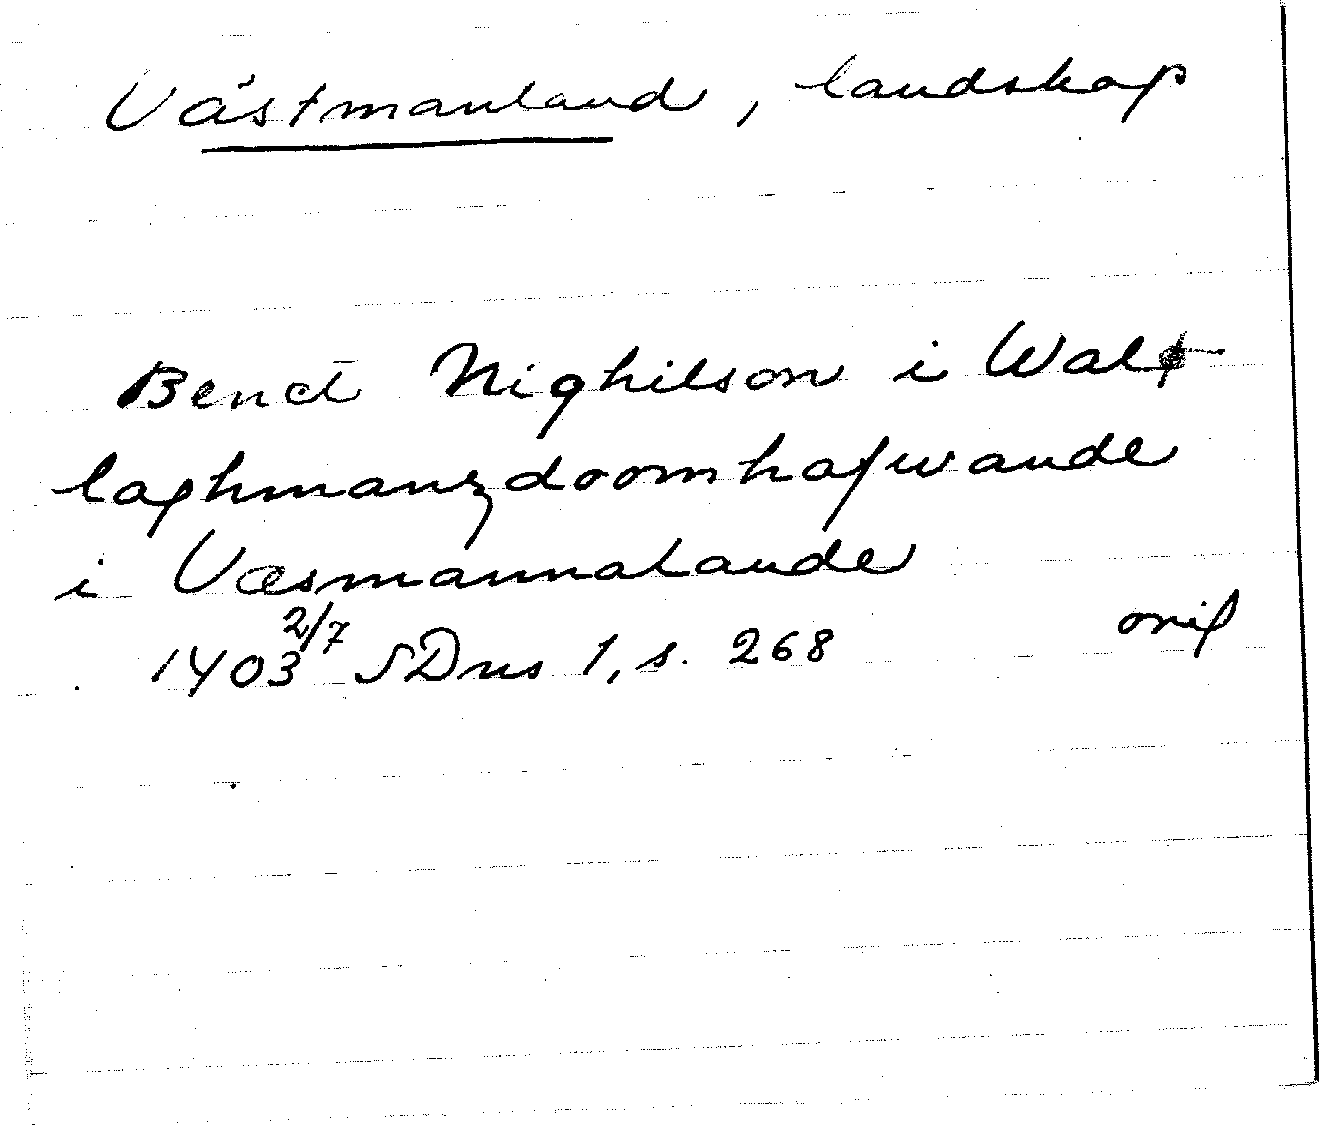 Västmanland, landskap
Benct Nighilson i Wals
laghmanzdoomhafwande
i Væsmannalande
1403 2/7 SDns 1, s. 268 orig